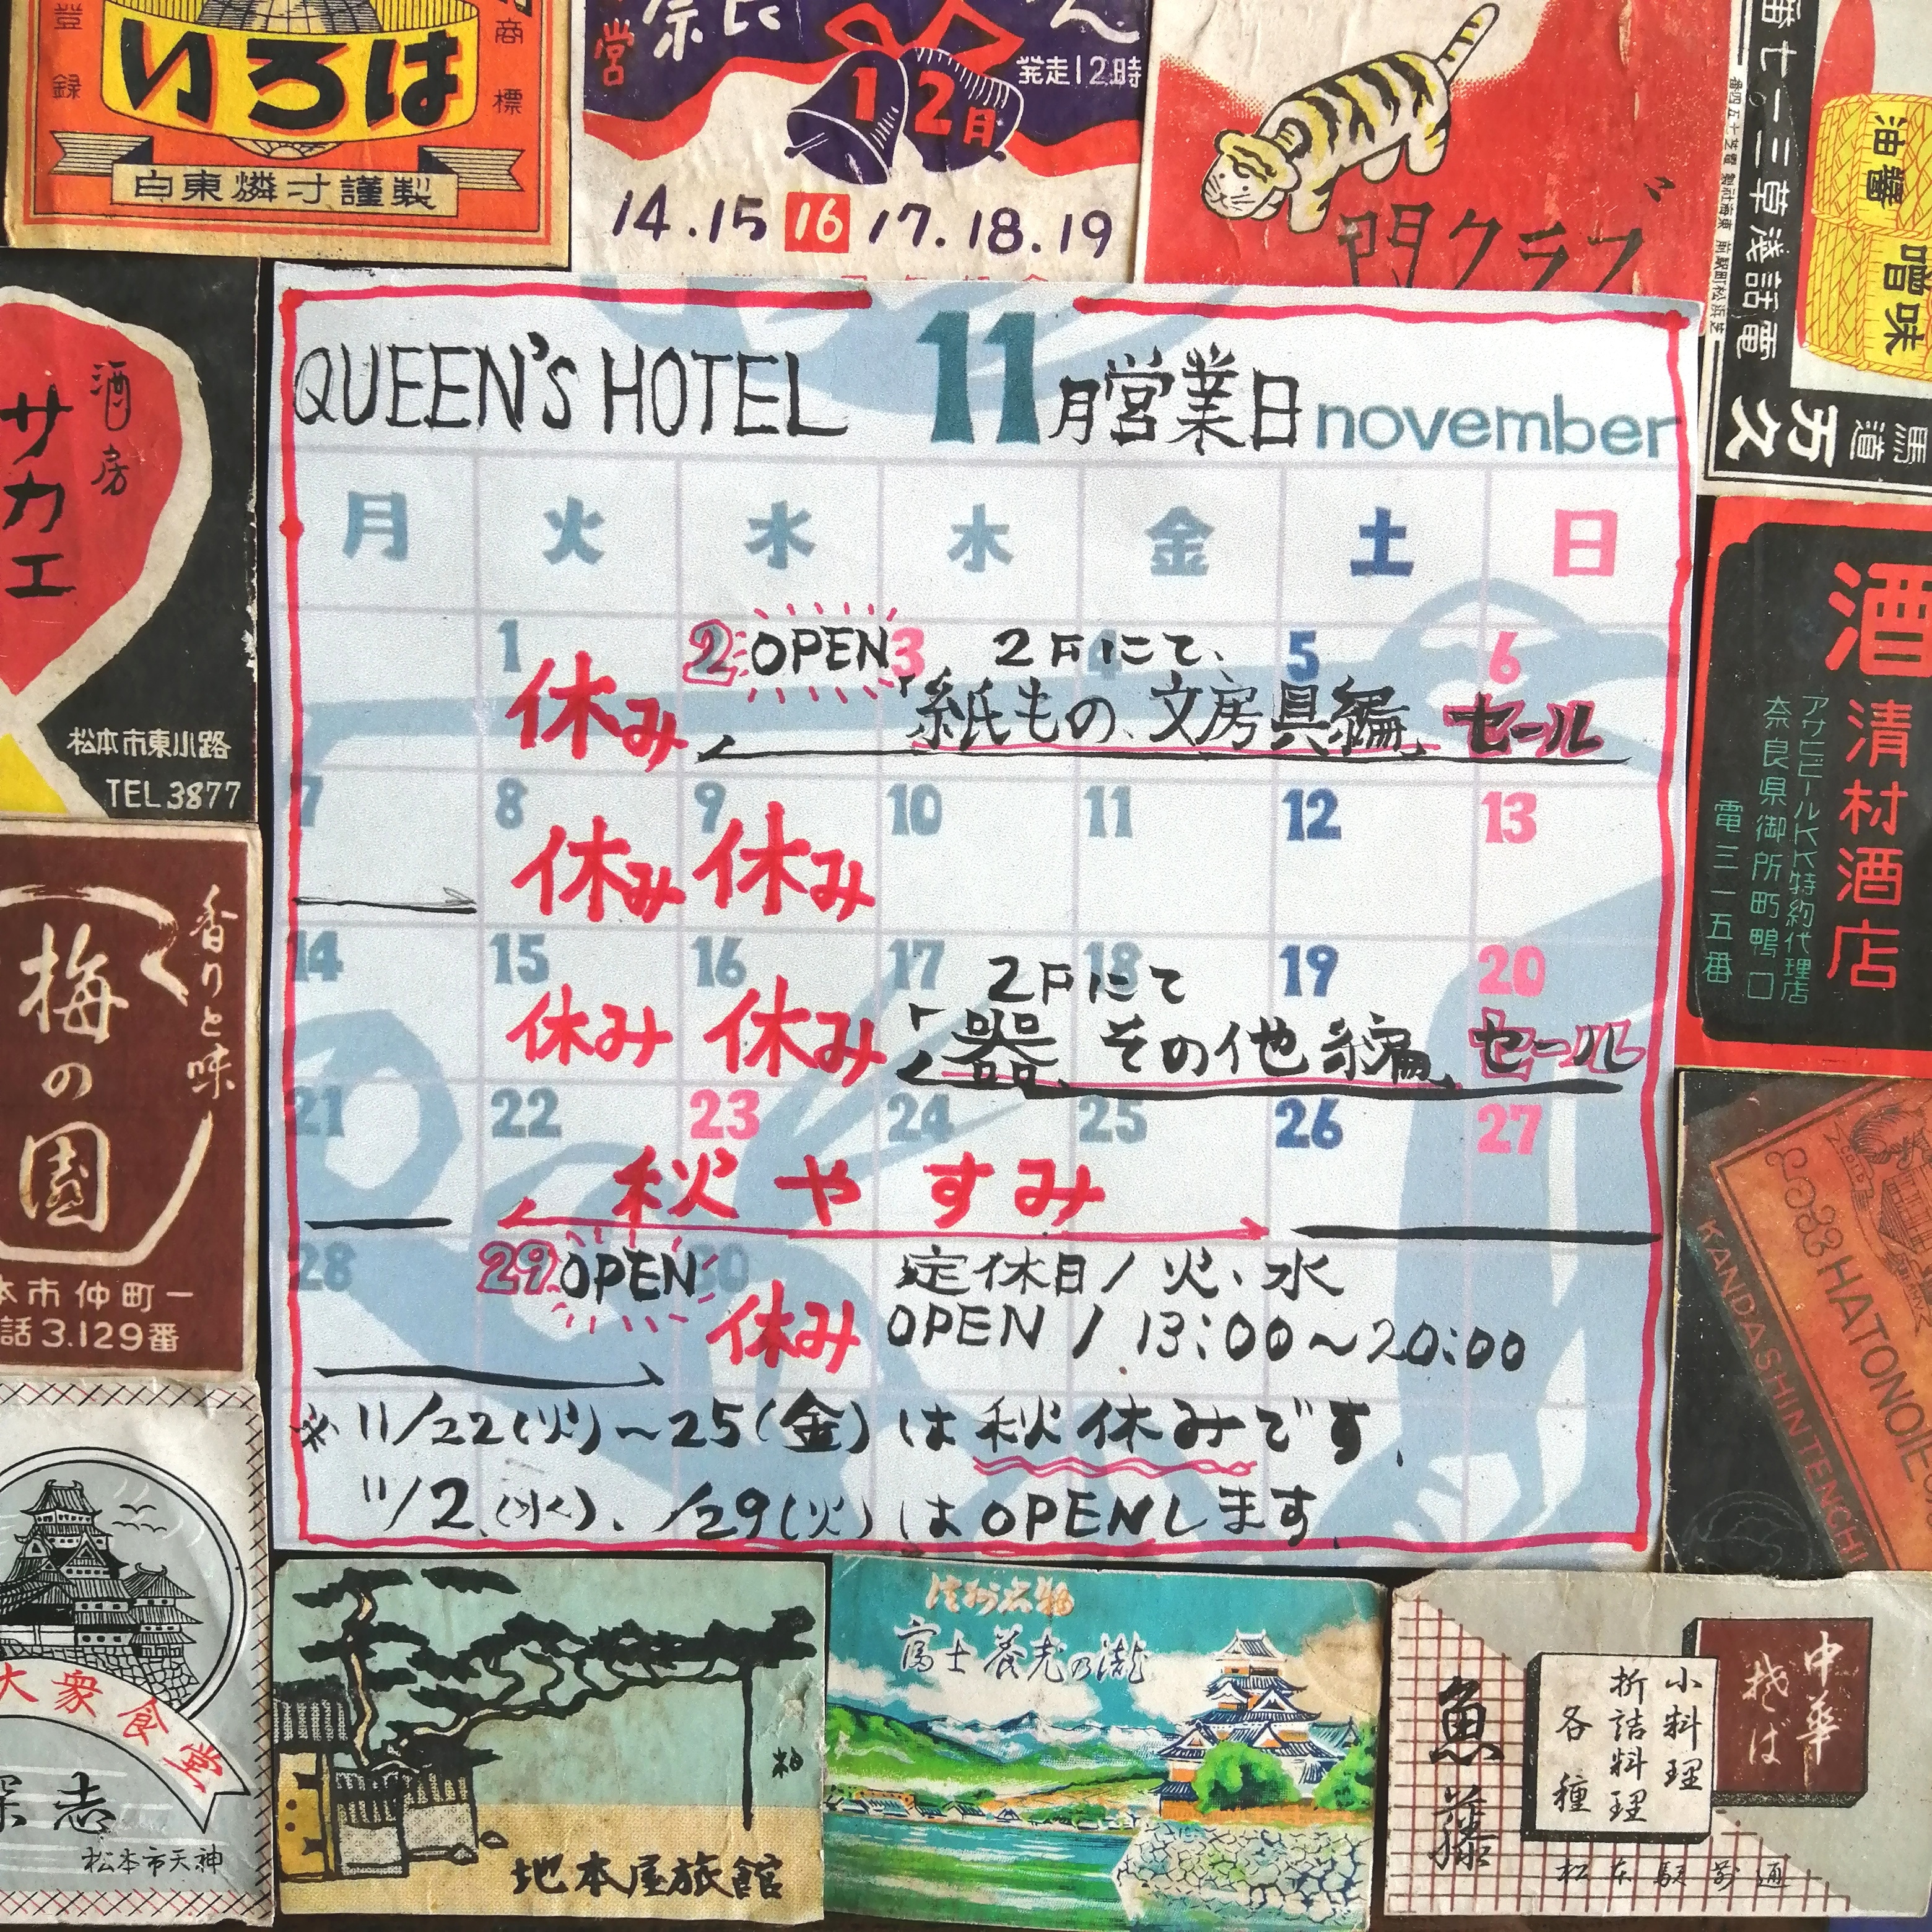 登録
商標
いろは
白東燐寸謹製
営
発走12時
12月
14.15 16 17.18.19
門クラブ
油醤
噌味
番七一三草浅話電
馬道
万久
酒房
サカエ
松本市東小路
TEL 3877
QUEEN'S HOTEL 11月営業日 november
月 火 水 木 金 土 日
1 2 OPEN 3 4 5 6
2Fにて、
休み 「紙もの、文房具編」 セール
7 8 9 10 11 12 13
休み 休み
14 15 16 17 18 19 20
2Fにて
休み 休み 「器、その他編」 セール
21 22 23 24 25 26 27
秋やすみ
28 29 OPEN 30 定休日/火、水
休み OPEN / 13:00〜20:00
※ 11/22(火)〜25(金)は秋休みです。
11/2.(水)、/29(火)はOPENします。
酒
清村酒店
アサヒビールKK特約代理店
奈良県御所町鴨口
電三一五番
香りと味
梅の園
本市仲町一
話3.129番
HATONOIE
KANDASHINTENCHI
大衆食堂
深志
松本市天神
地本屋旅館
富士養老の瀧
魚藤
小料理
折詰料理
各種
中華
そば
松本駅前通